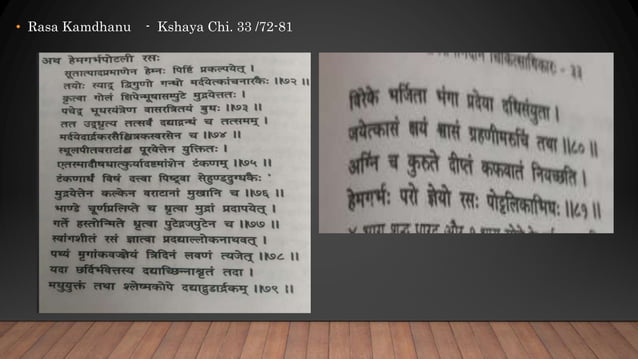 • Rasa Kamdhanu - Kshaya Chi. 33 /72-81
अथ हेमगर्भपोटली रसः
सूतात्पादप्रमाणेन हेम्नः पिष्टिं प्रकल्पयेत् ।
तयोः स्याद् द्विगुणो गन्धो मर्दयेत्काञ्चनारकैः ।।७२।।
कृत्वा गोलं क्षिपेन्मूषासम्पुटे मुद्रयेत्ततः ।
पचेद् भूधरयंत्रेण वासरत्रितयं बुधः ।।७३।।
तत उद्धृत्य तत्सर्वं दद्याद्गन्धं च तत्समम् ।
मर्दयेदार्द्रकरसैश्चित्रकस्वरसेन च ।।७४।।
स्थूलपीतवराटांश्च पूरयेत्तेन युक्तितः ।
एतस्मादौषधात्कुर्यादष्टमांशेन टंकणम् ।।७५।।
टंकणार्धं विषं दत्त्वा पिष्ट्वा सेहुण्डदुग्धकैः
मुद्रयेत्तेन कल्केन वराटानां मुखानि च ।।७६।।
भाण्डे चूर्णप्रलिप्ते च धृत्वा मुद्रां प्रदापयेत् ।
गर्ते हस्तोन्मिते धृत्वा पुटेद्गजपुटेन च ।।७७।।
स्वांगशीतं रसं ज्ञात्वा प्रदद्याल्लोकनाथवत् ।
पथ्यं मृगांकवज्ज्ञेयं त्रिदिनं लवणं त्यजेत् ।।७८।।
यदा छर्दिर्भवेत्तस्य दद्याच्छिन्नाशृतं तदा ।
मधुयुक्तं तथा श्लेष्मकोपे दद्याद्गुडार्द्रकम् ।।७९।।
चिकित्साधिकारः - ३३
विरेके भर्जिता भंगा प्रदेया दधिसंयुता ।
जयेत्कासं क्षयं श्वासं ग्रहणीमरुचिं तथा ।।८०।।
अग्निं च कुरुते दीप्तं कफवातं नियच्छति ।
हेमगर्भः परो ज्ञेयो रसः पोट्टलिकाभिधः ।।८१।।